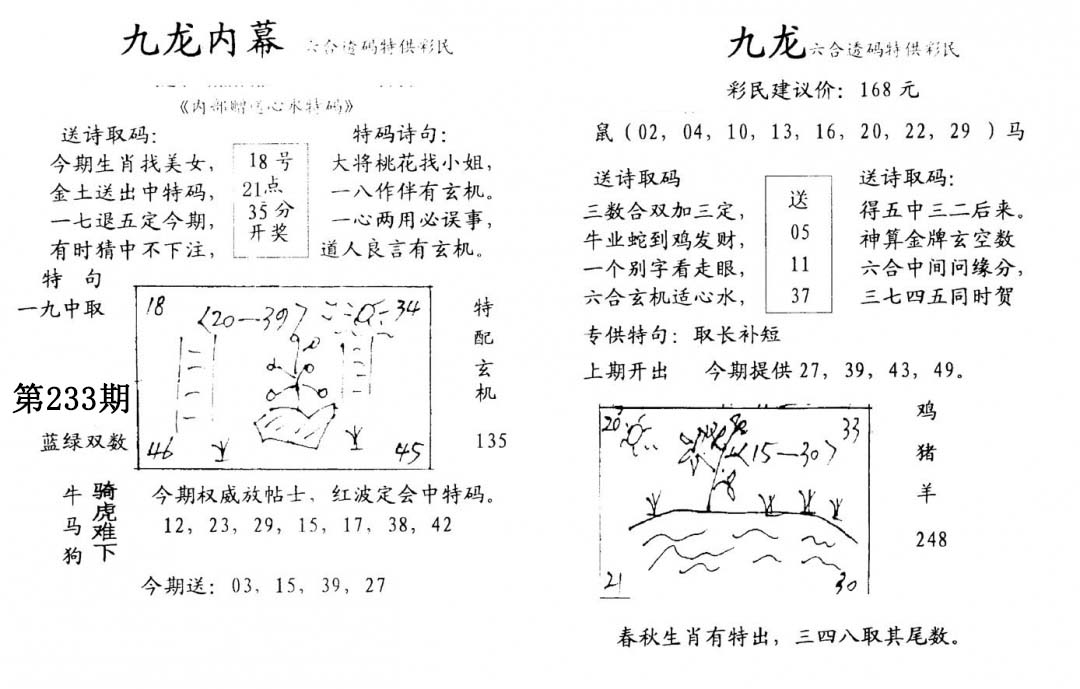 九龙内幕 六合透码特供彩民
《内部赠送心水特码》
送诗取码：
今期生肖找美女，
金土送出中特码，
一七退五定今期，
有时猜中不下注，
18号
21点
35分
开奖
特码诗句：
大将桃花找小姐，
一八作伴有玄机。
一心两用必误事，
道人良言有玄机。
特 句
一九中取
第233期
蓝绿双数
18
〈20—39〉
34
46
45
特
配
玄
机
135
牛
马
狗
骑
虎
难
下
今期权威放帖士，红波定会中特码。
12，23，29，15，17，38，42
今期送：03，15，39，27
九龙 六合透码特供彩民
彩民建议价：168元
鼠（02，04，10，13，16，20，22，29 ）马
送诗取码
三数合双加三定，
牛业蛇到鸡发财，
一个别字看走眼，
六合玄机适心水，
送
05
11
37
送诗取码：
得五中三二后来。
神算金牌玄空数
六合中间问缘分，
三七四五同时贺
专供特句：取长补短
上期开出 今期提供27，39，43，49。
20
〈15—30〉
33
21
30
鸡
猪
羊
248
春秋生肖有特出，三四八取其尾数。